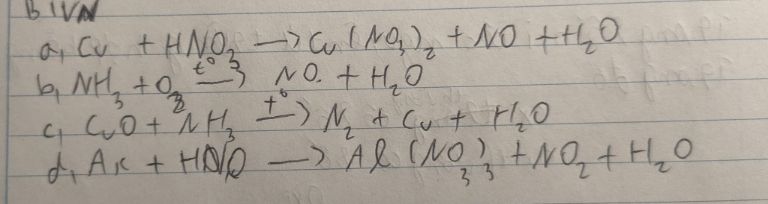 BIVN
a, Cu + HNO₃ → Cu(NO₃)₂ + NO + H₂O
b, NH₃ + O₂ t°→ NO + H₂O
c, CuO + NH₃ t°→ N₂ + Cu + H₂O
d, + → Al(NO₃)₃ + NO₂ + H₂O